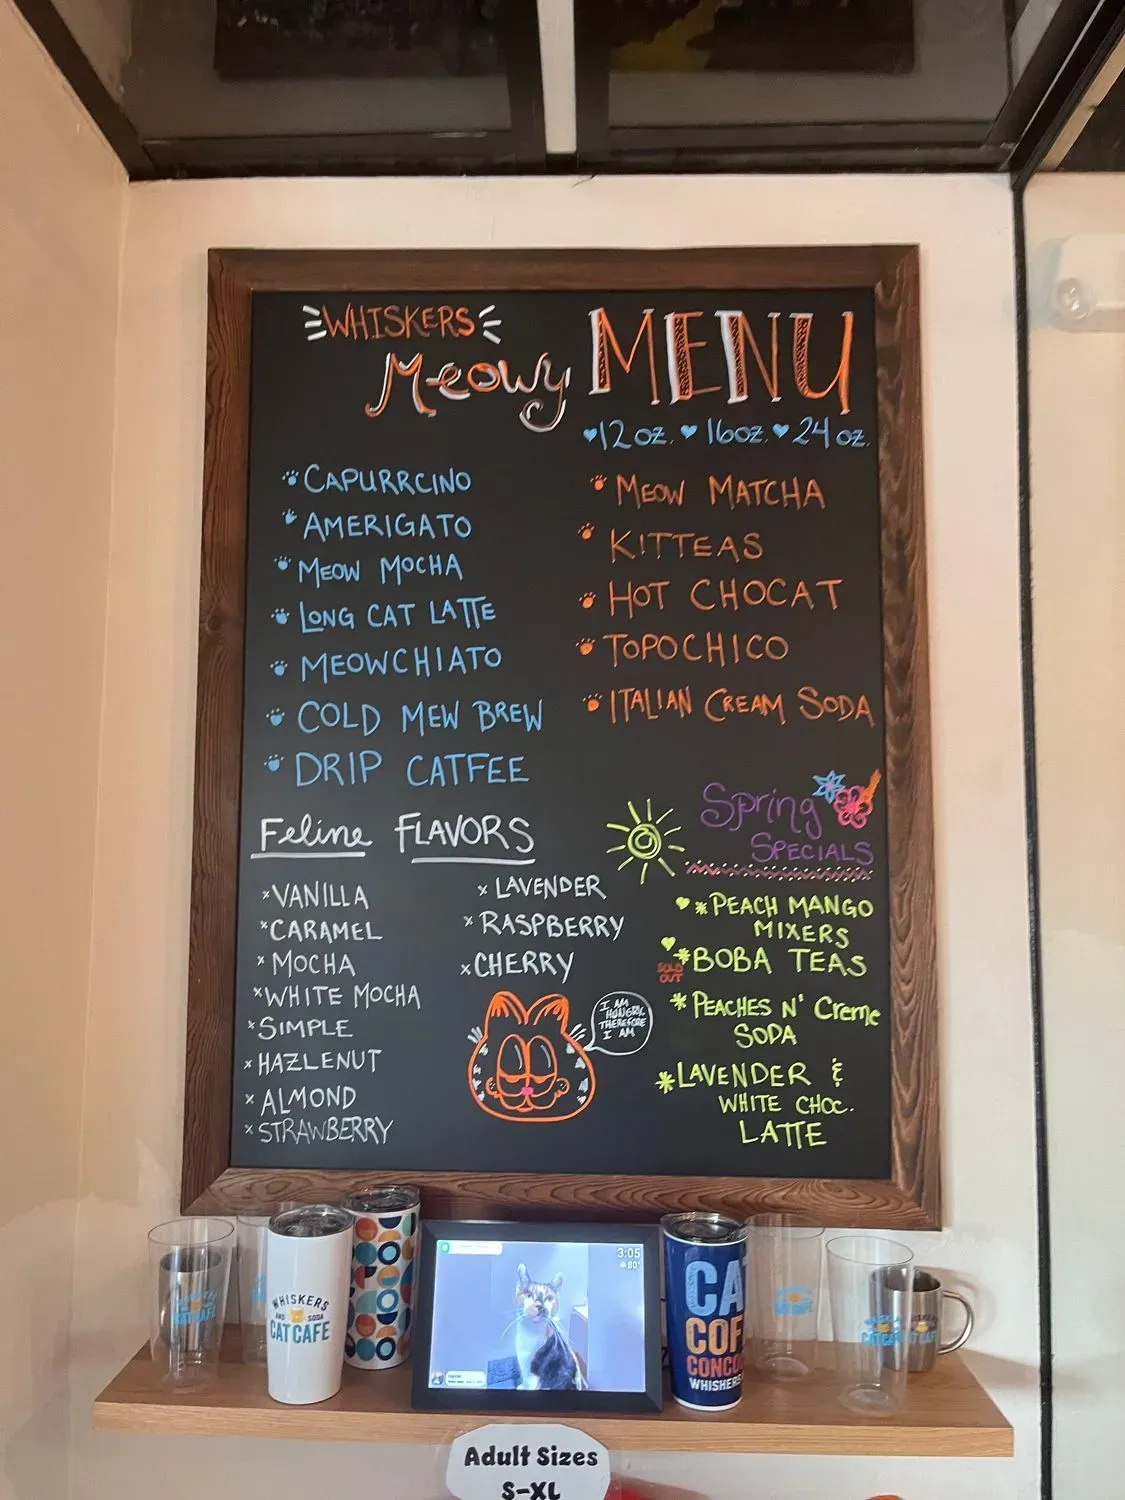 WHISKERS
Meowy MENU
12 oz. 16oz. 24 oz.
CAPURRCINO
AMERIGATO
MEOW MOCHA
LONG CAT LATTE
MEOWCHIATO
COLD MEW BREW
DRIP CATFEE
MEOW MATCHA
KITTEAS
HOT CHOCAT
TOPOCHICO
ITALIAN CREAM SODA
Feline FLAVORS
×VANILLA
×CARAMEL
×MOCHA
×WHITE MOCHA
×SIMPLE
×HAZLENUT
×ALMOND
×STRAWBERRY
×LAVENDER
×RASPBERRY
×CHERRY
I AM
HUNGRY,
THEREFORE
I AM
Spring
SPECIALS
*PEACH MANGO
MIXERS
*BOBA TEAS
SOLD
OUT
*PEACHES N' Creme
SODA
*LAVENDER &
WHITE CHOC.
LATTE
WHISKERS
AND SODA
CAT CAFE
3:05
80°
CA
COF
CONCO
WHISKERS
CAT CAFE
Adult Sizes
S-XL